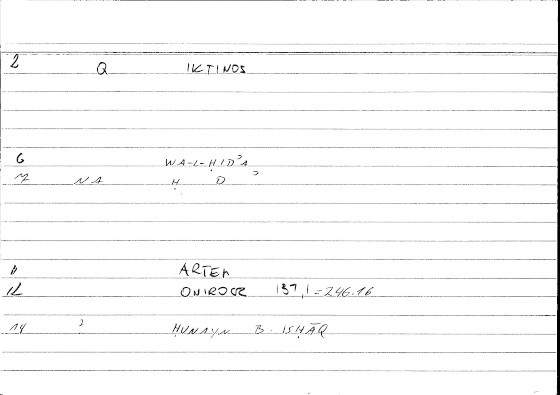 2 Q IKTINOS
6 WA-L-ḤIDʾA
7 NA Ḥ D ʾ
11 ARTEM
12 ONIROCR 137,1 = 246.16
14 2 ḤUNAYN B. ISḤĀQ